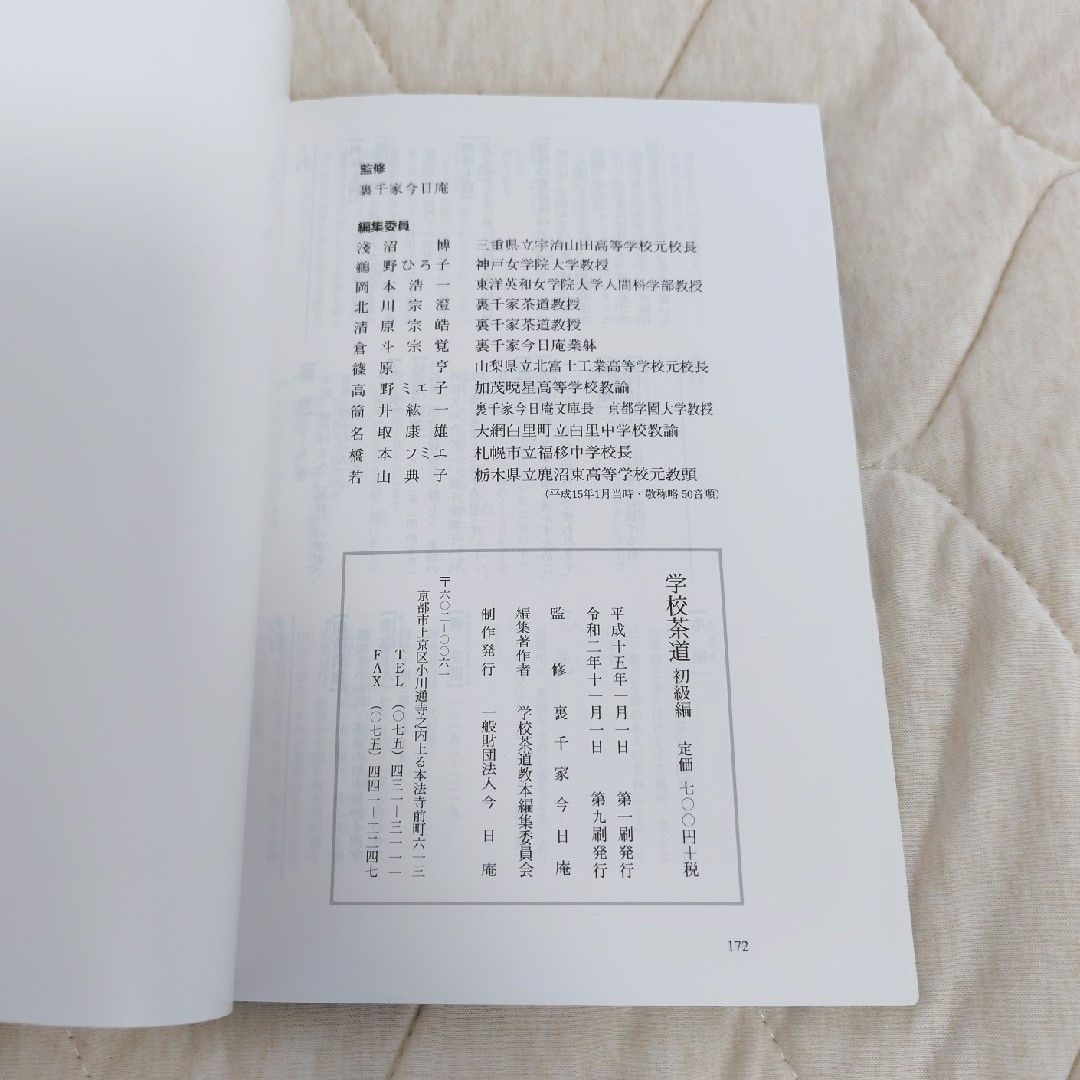 監修
裏千家今日庵
編集委員
淺沼 博 三重県立宇治山田高等学校元校長
鵜野ひろ子 神戸女学院大学教授
岡本浩一 東洋英和女学院大学人間科学部教授
北川宗澄 裏千家茶道教授
清原宗皓 裏千家茶道教授
倉斗宗覚 裏千家今日庵業躰
篠原 亨 山梨県立北富士工業高等学校元校長
高野ミエ子 加茂暁星高等学校教諭
筒井紘一 裏千家今日庵文庫長 京都学園大学教授
名取康雄 大網白里町立白里中学校教諭
橋本フミエ 札幌市立福移中学校長
若山典子 栃木県立鹿沼東高等学校元教頭
(平成15年1月当時・敬称略 50音順)
学校茶道 初級編 定価 七〇〇円+税
平成十五年一月一日 第一刷発行
令和二年十一月一日 第九刷発行
監修 裏千家今日庵
編集著作者 学校茶道教本編集委員会
制作発行 一般財団法人今日庵
〒六〇二―〇〇六一
京都市上京区小川通寺之内上る本法寺前町六一三
TEL(〇七五)四三一―三一一一
FAX(〇七五)四四一―二二四七
172